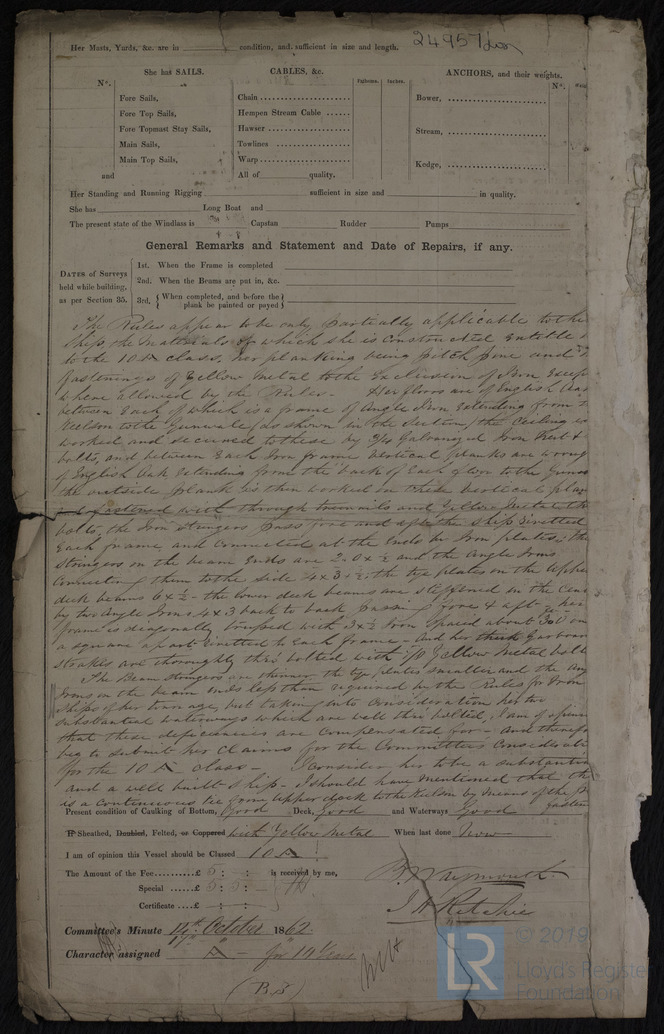 Her Masts, Yards, &c. are in condition, and sufficient in size and length.
24957 Lon
She has SAILS.
CABLES, &c.
ANCHORS, and their weights.
N°.
Fathoms. Inches.
N°.
Fore Sails,
Fore Top Sails,
Fore Topmast Stay Sails,
Main Sails,
Main Top Sails,
and
Chain
Hempen Stream Cable
Hawser
Towlines
Warp
All of quality.
Bower,
Stream,
Kedge,
Her Standing and Running Rigging sufficient in size and in quality.
She has Long Boat and
The present state of the Windlass is Capstan Rudder Pumps
General Remarks and Statement and Date of Repairs, if any.
DATES of Surveys held while building, as per Section 35.
1st. When the Frame is completed
2nd. When the Beams are put in, &c.
3rd. { When completed, and before the plank be painted or payed }
The Rules appear to be only partially applicable to the
Ship, the materials of which she is constructed entitle
to the 10 A class, her planking being pitch pine and
fastenings of Yellow Metal to the exclusion of Iron except
where allowed by the Rules. Her floors are of English Oak
between each of which is a frame of angle Iron extending from
Keelson to the Gunwale (as shown in the Section) the Ceiling is
worked and secured to these by 3/4 Galvanized Iron Nut &
bolts, and between each Iron frame vertical planks are wrought
of English Oak extending from the back of each floor to the Gunwale
the outside plank is then worked on these vertical plan
and fastened with through treenails and Yellow Metal
bolts, the Iron stringers pass fore and aft the Ship rivetted
each frame and connected at the ends by Iron plates, the
stringers on the beam ends are 20 x 1/2 and the Angle Irons
connecting them to the side 4 x 3 - 1/2, the tye plates on the upper
deck beams 6 x 1/2 - the lower deck beams are stiffened in the cen
by two Angle Irons 4 x 3 back to back passing fore & aft - her
frame is diagonally trussed with 3 x 1/2 Iron spaced about on
a square apart rivetted to each frame - and her Garboard
strakes are thoroughly thro' bolted with 7/8 Yellow Metal bolts
The Beam stringers are thinner, the tye plates smaller and the Ang
Irons on the beam ends less than required by the Rules for Iron
Ships of her tonnage, but taking into consideration her two
substantial waterways which are well thro' bolted, I am of opinion
that these deficiencies are compensated for - and therefore
beg to submit her claims for the Committee's consideration
for the 10 A class - I consider her to be a substantial
and a well built ship - I should have mentioned that the
is a continuous tie from upper deck to the Keelson by means of the
fasten
Present condition of Caulking of Bottom, Good Deck, Good and Waterways Good
If Sheathed, Doubled, Felted, or Coppered with Yellow Metal When last done Now
I am of opinion this Vessel should be Classed 10 A
The Amount of the Fee......£ 5 : : is received by me,
Special ......£ 5 : 5 :
Certificate ......£ : :
B. Waymouth
J H Ritchie
Committee's Minute 14th October 1862
17th "
Character assigned A - for 14 Years
(B.S)
LR
© 2019
Lloyd's Register
Foundation